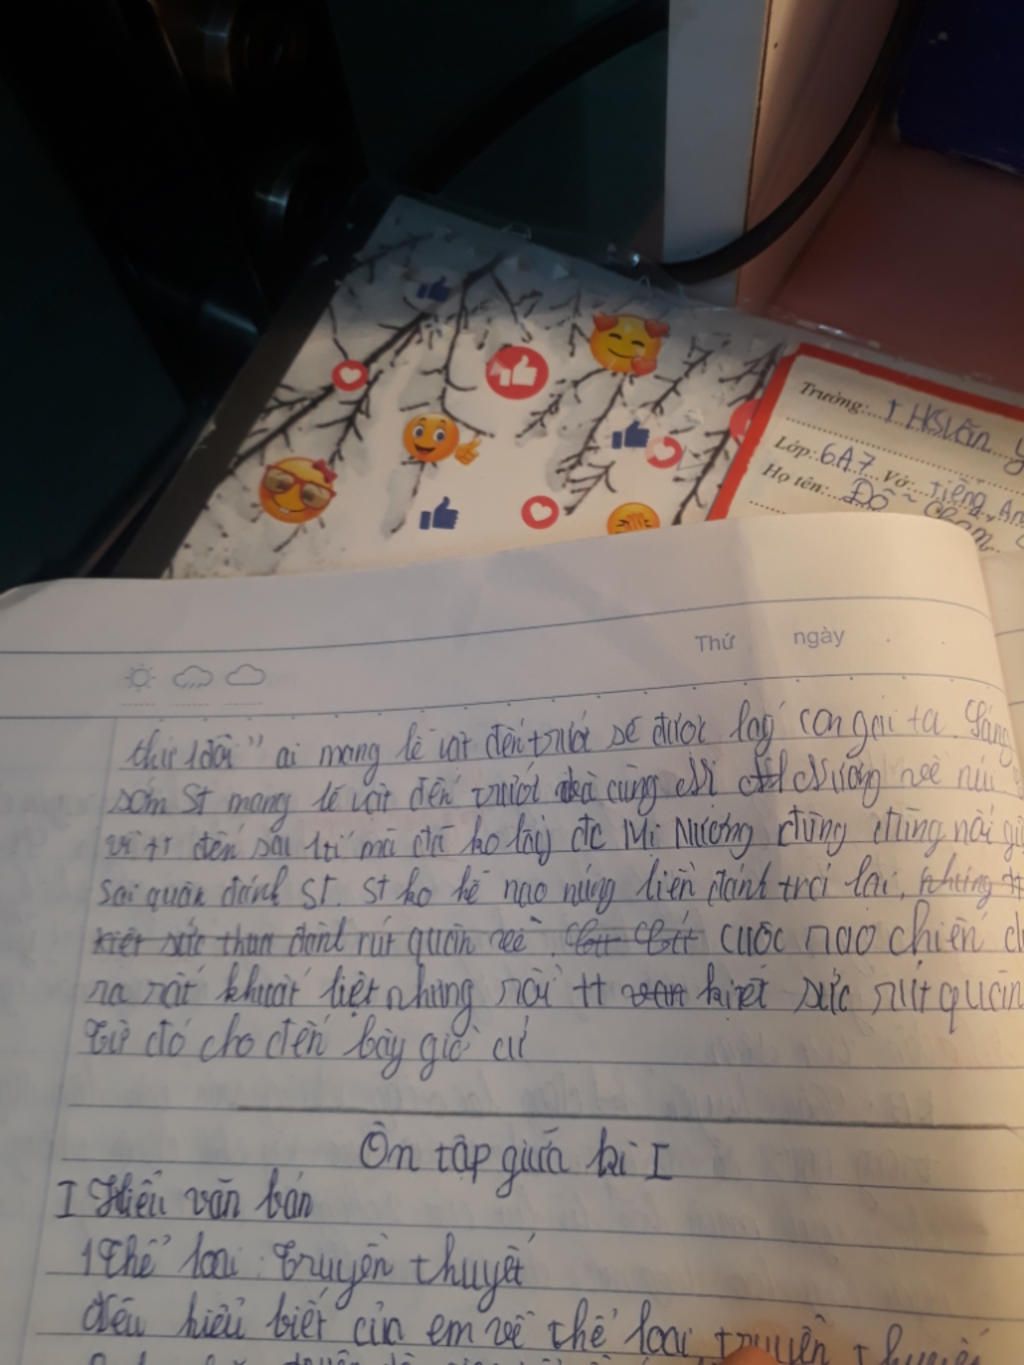 Trường: THSVăn
Lớp: 6A7 Vở: Tiếng
Họ tên: Đỗ
Thứ ngày
ai mang lễ vật đến trước sẽ được lấy con gái ta. Sáng
sớm ST mang lễ vật đến trước và cùng Mị Nương về núi
vì tt đến sau mà đã ko lấy đc Mị Nương đùng đùng nổi
sai quân đánh ST. ST ko hề nao núng liền đánh trả lại,
kiệt sức than đành rút quân về. cuộc nao chiến
ra rất khuất liệt nhưng rồi tt kiệt sức rút quân
Từ đó cho đến bây giờ cứ
Ôn tập giữa kì I
I Hiểu văn bản
1 Thể loại: Truyền thuyết
đều hiểu biết của em về thể loại truyền